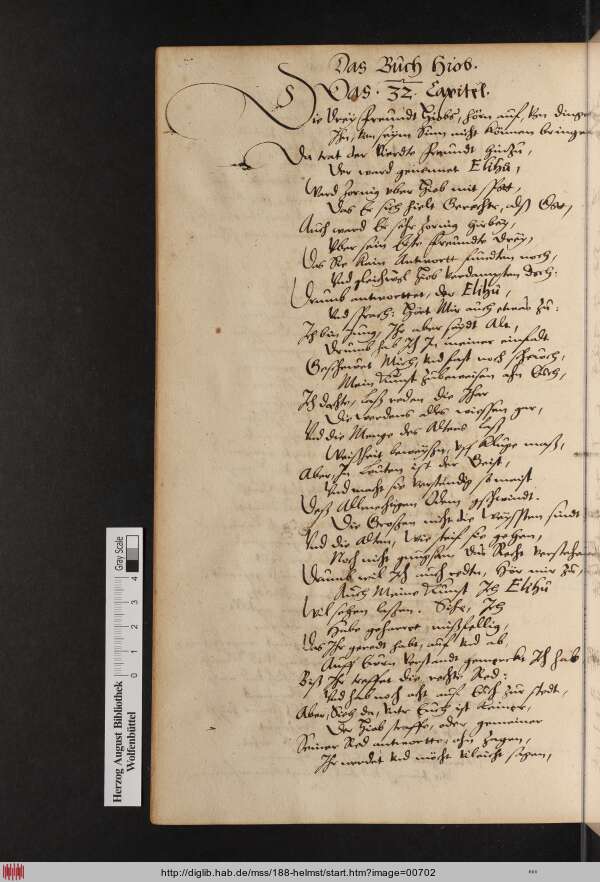 Das Buch Hiob.
Das. 32. Capitel.
Die drey freundt Hiobs, hörn auf, von dingen
Ihn, von seim Sinn nicht können bringen
Da trat der Vierdte freundt hinzu,
Der ward genennet Elihu,
Ward zornig vber Hiob mit spot,
Das Er sich hielt Gerechter, alß Got,
Auch ward Er sehr zornig hirbey,
Vber sein freundte drey,
Das Sie kein Antwortt fundten noch,
Vnd gleichwol Hiob verdampten doch:
Drumb antworttet, der Elihu,
Vnd sprach: Hört Mir auch etwas zu:
Ich bin Jung, Ihr aber seydt Alt,
Drumb hab Ich In meiner einfalt
Gescheuet Mich, vnd fast noch scheuch,
Mein Kunst zubeweisen an Euch,
Ich dachte, laß reden die Jhar
Die werdens alles wissen gar,
Vnd die Menge des Alters laß
Weißheit beweysen, vf kluge maß,
Aber, In Leuten ist der Geist,
Vnd macht sie verstendig
Deß Allmechtigen Odem geschwindt.
Die Großen nicht die Weysten sindt
Vnd die Alten, wie steif sie gehen,
Noch nicht das Recht verstehen
Darumb wil Ich auch redtn, Hör mir zu,
Auch Meine Kunst Ich Elihu
Wil sehen lassen. Sihe, Ich
Habe geharret
Das Ihr geredt habt, auf vnd ab
Auff Euren Verstandt gemerckt Ich hab
Biß Ihr treffet die rechte Red:
Vnd hab noch acht auf Euch zur stedt,
Aber, Sieh da, vnter Euch ist keiner,
Der Hiob straffe, oder gemeiner
Seiner Red antwortte, ohn zagen,
Ihr werdet vnd möcht vileicht sagen,
Gray Scale
0 1 2 3 4
Herzog August Bibliothek
Wolfenbüttel
http://diglib.hab.de/mss/188-helmst/start.htm?image=00702